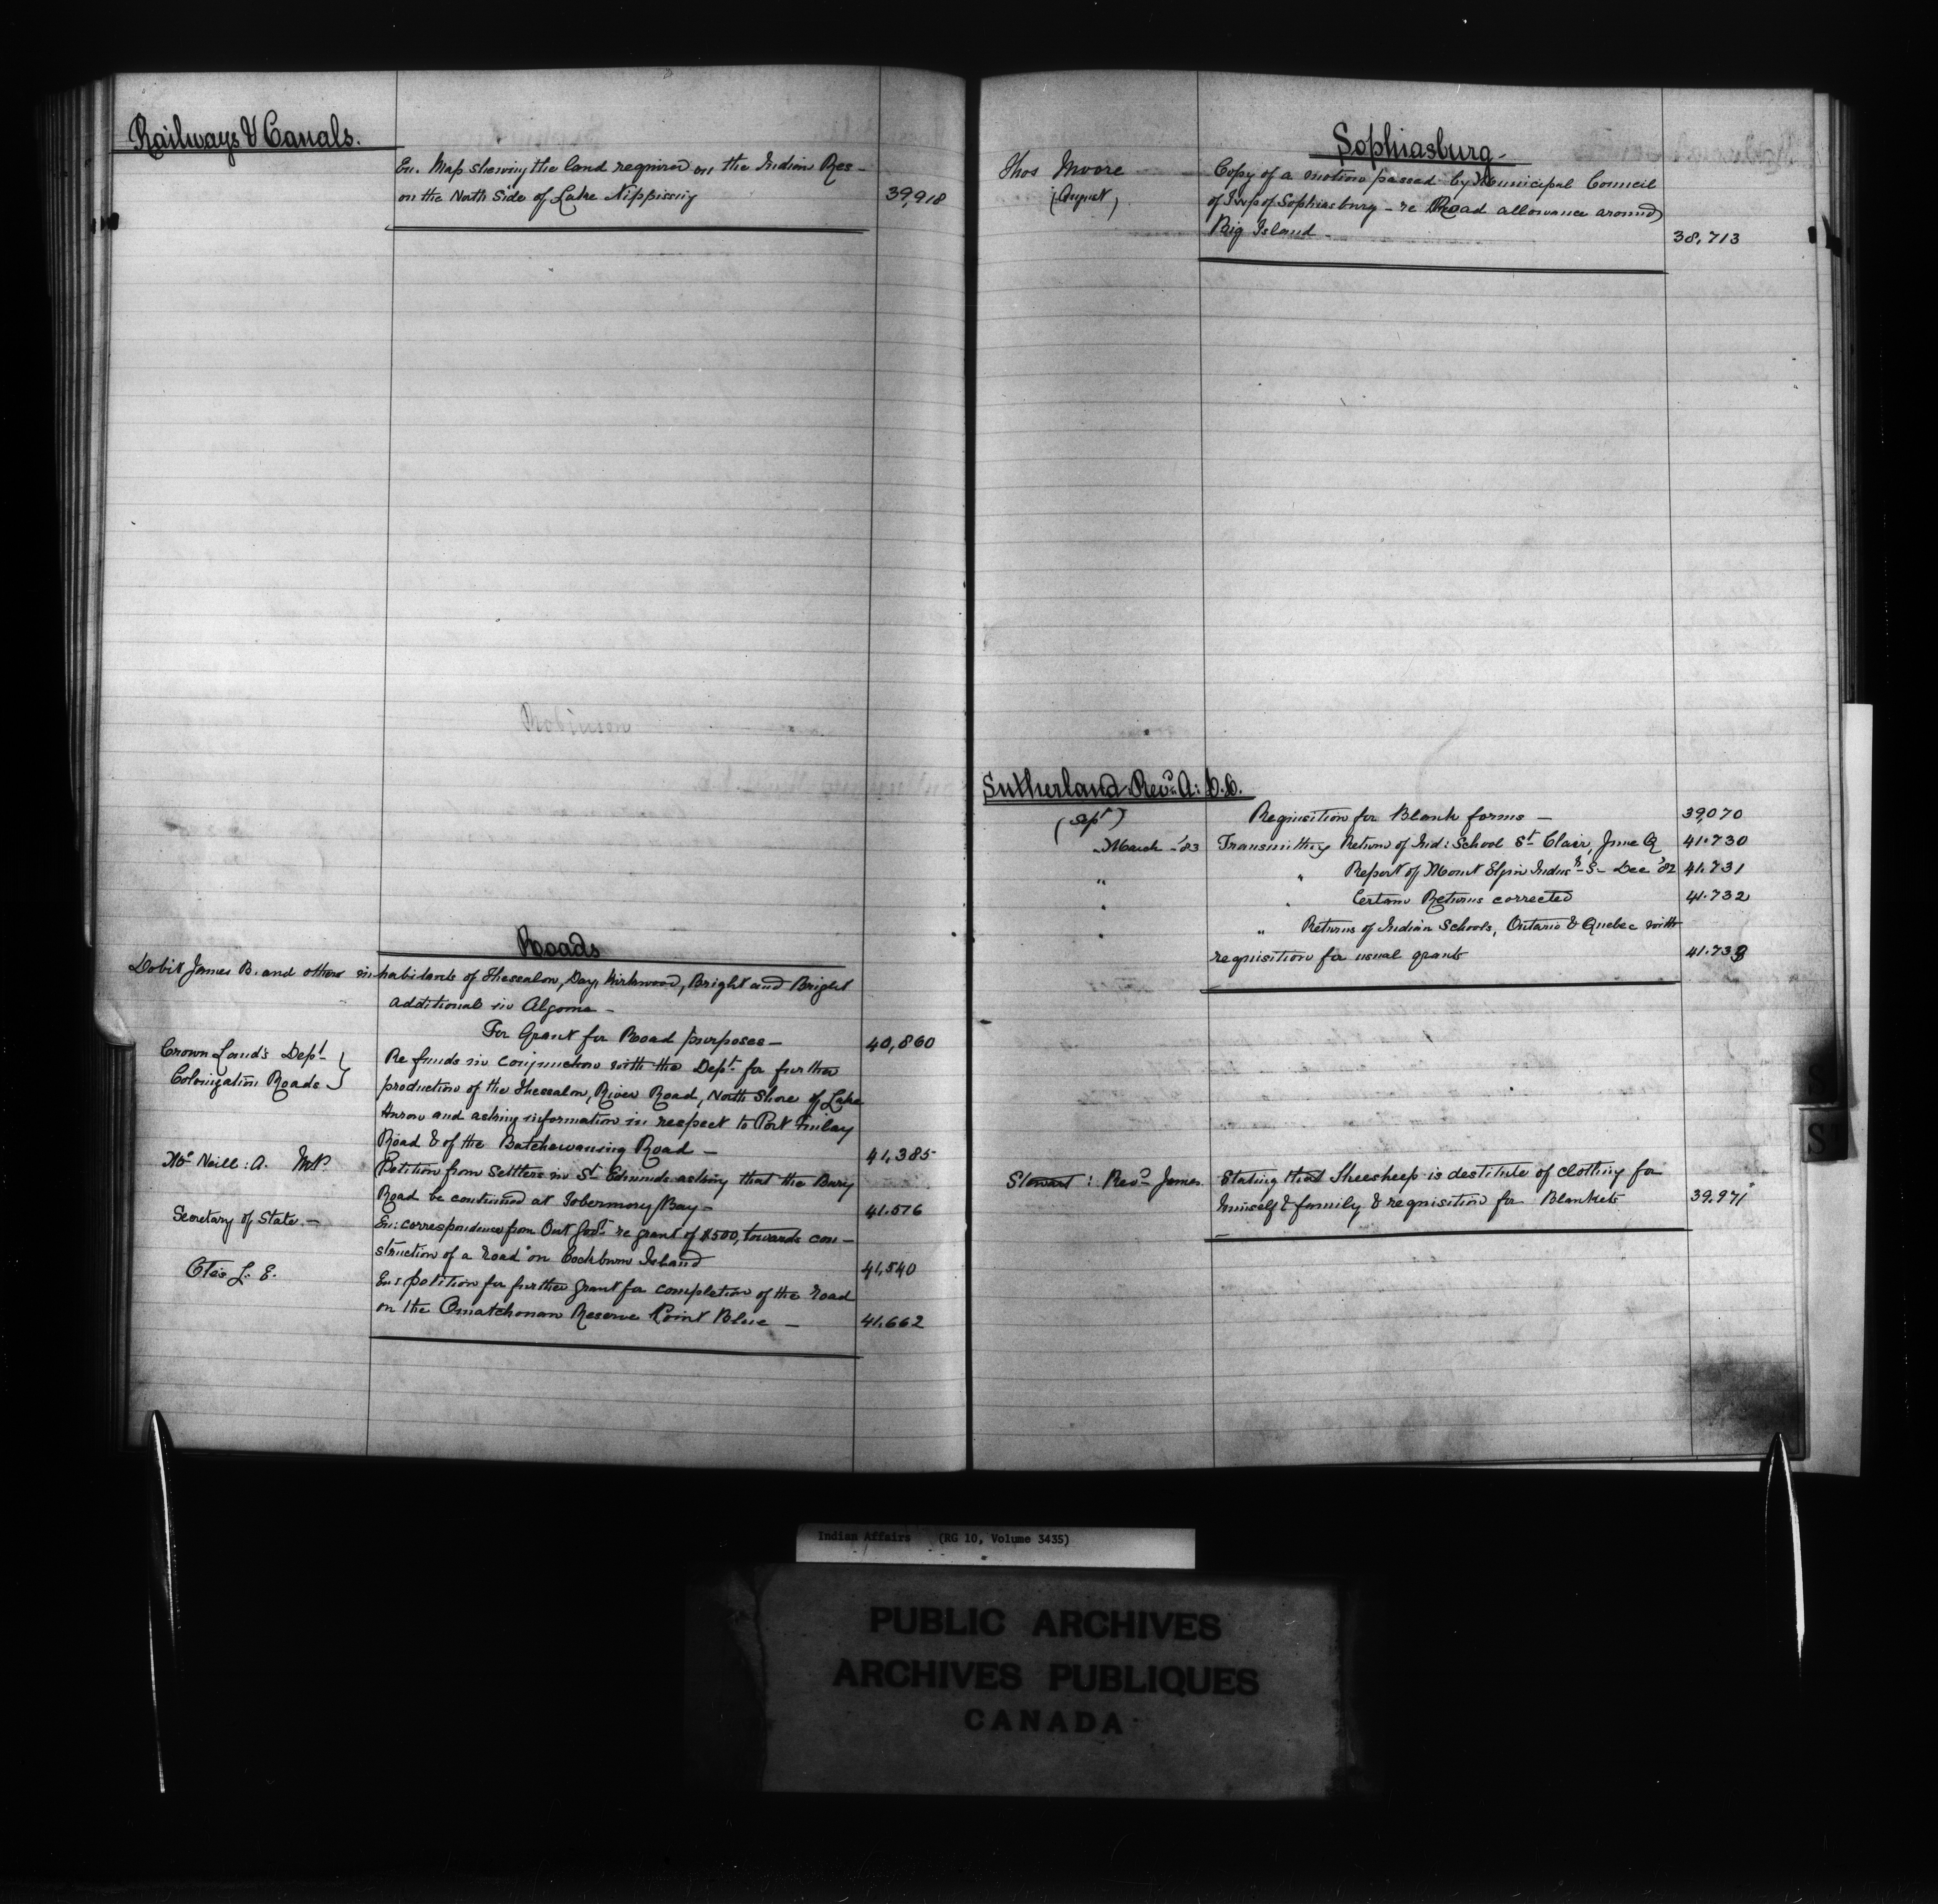 Railways & Canals.
En. Map shewing the land required on the Indian Res-
on the North Side of Lake Nippissing 39,918
Roads
Dobie James B. and others inhabitants of Thessalon, Day, Kirkwood, Bright and Bright
additional in Algoma -
For Grant for Road purposes - 40,860
Crown Lands Dept
Colonization Roads
Re funds in conjunction with the Dept. for further
production of the Thessalon, River Road, North Shore of Lake
Huron and asking information in respect to Port Finlay
Road & of the Batchewansing Road - 41,385
Mc Neill: A. M.P. Petition from Settlers in St Edmunds asking that the Bury
Road be continued at Tobermory Bay - 41.576
Secretary of State. - En: correspondence from Ont Govt. re grant of $500, towards con-
struction of a road on Cockburn Island 41,540
Otis L. E. En: petition for further grant for completion of the road
on the Omatchonan Reserve Point Blue - 41.662
Sophiasburg -
Thos Moore Copy of a motion passed by Municipal Council
(August) of Twp of Sophiasburg - re Road allowance around
Big Island - 38,713
Sutherland Revd. A: D.D.
(Sept) Requisition for Blank forms - 39,070
March - '83 Transmitting Return of Ind: School St Clair, June Q 41.730
" " Report of Mount Elgin Indus - S - Dec '82 41.731
" " Certain Returns corrected 41.732
" " Returns of Indian Schools, Ontario & Quebec with
requisition for usual grants 41.733
Stewart: Revd James. Stating that Sheesheep is destitute of clothing for
himself & family & requisition for Blankets 39.971
S
S
Indian Affairs (RG 10, Volume 3435)
PUBLIC ARCHIVES
ARCHIVES PUBLIQUES
CANADA